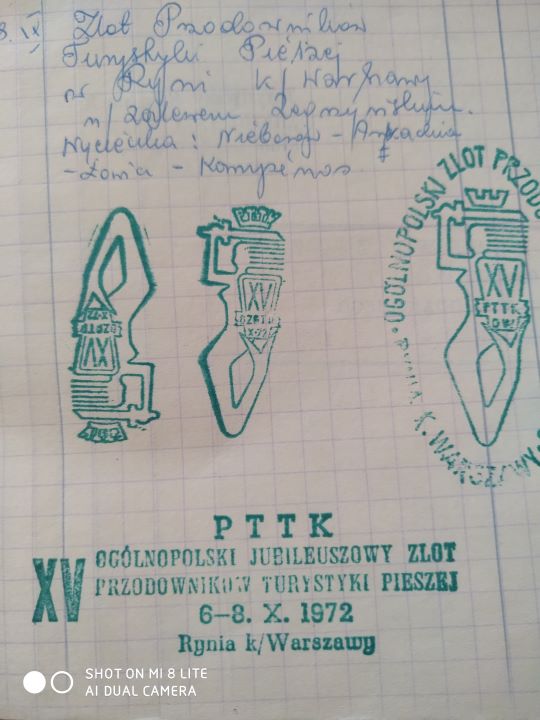 8. IX Zlot Przodowników
Turystyki Pieszej
w Ryni k/Warszawy
n/ zalewem Zegrzyńskim.
Wycieczka: Nieborów - Arkadia
- Żowia - Kampinos
OGÓLNOPOLSKI ZLOT PRZODO
RYNIA K. WARSZAWY
XV
XV
XV
PTTK
PTTK
XV OGÓLNOPOLSKI JUBILEUSZOWY ZLOT
PRZODOWNIKÓW TURYSTYKI PIESZEJ
6-8. X. 1972
Rynia k/Warszawy
SHOT ON MI 8 LITE
AI DUAL CAMERA